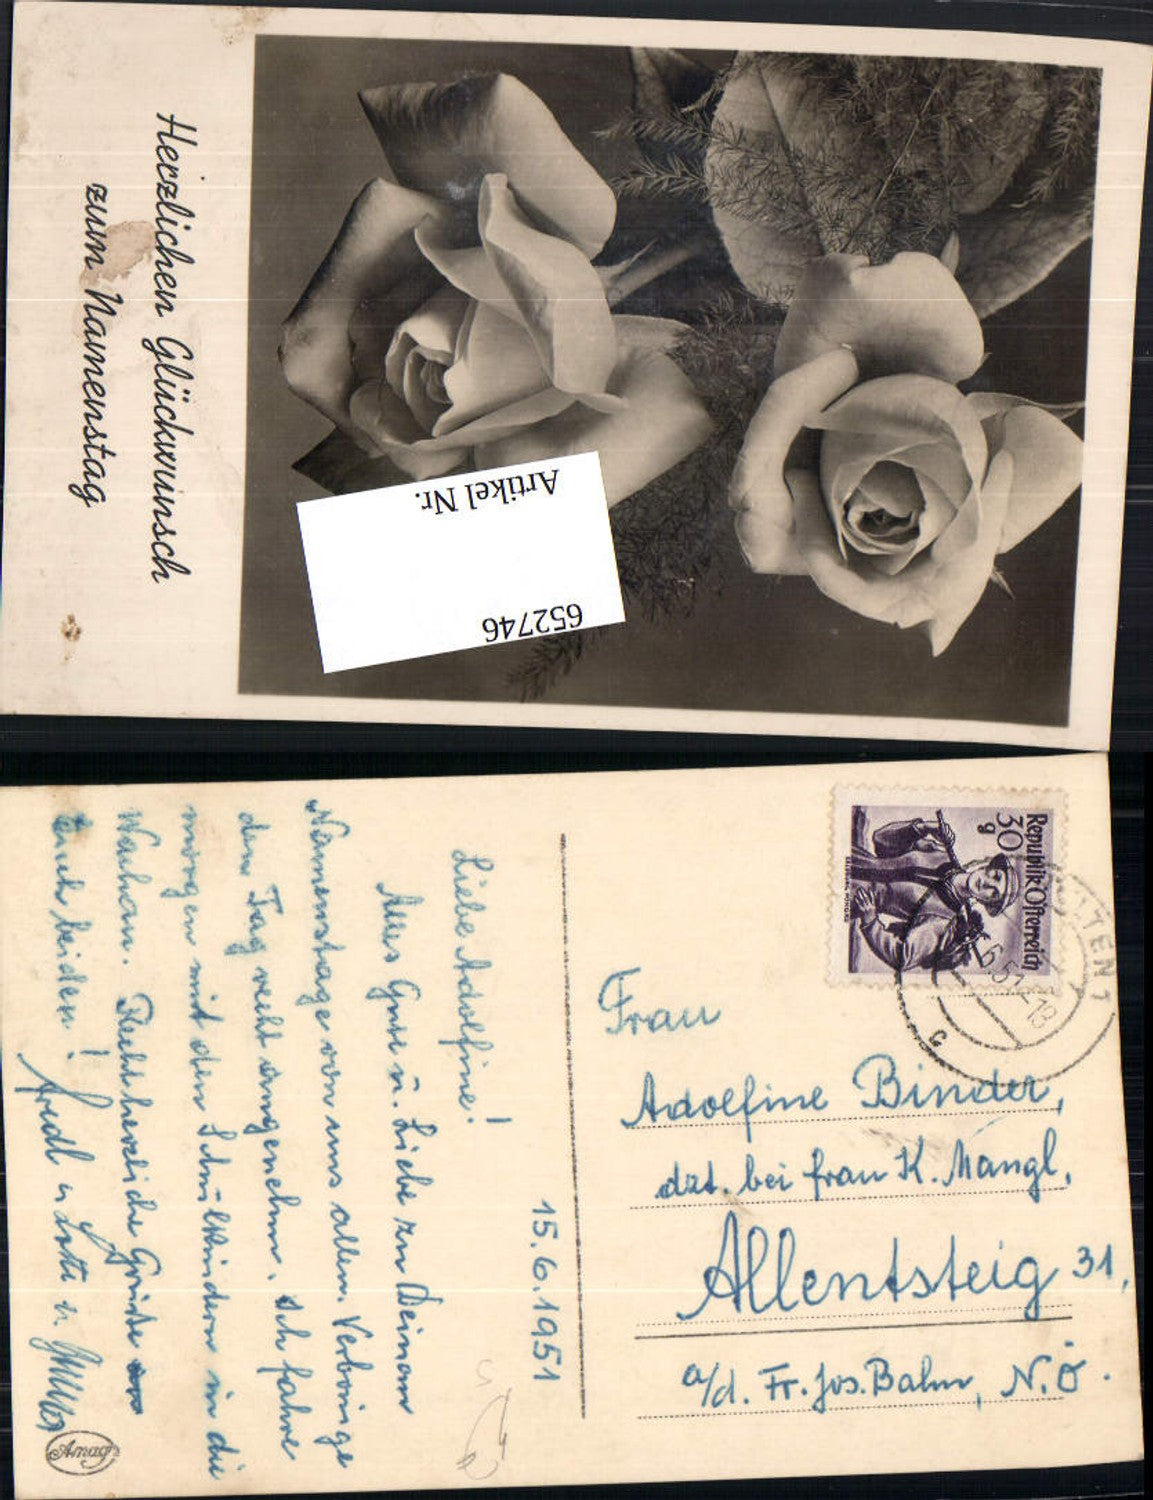 Herzlichen Glückwunsch
zum Namenstag
Artikel Nr.
652746
Republik Österreich
30 g
6.51-18
15.6.1951
Liebe Adolfine!
Alles Gute u. Liebe zu Deinem
Namenstage von uns allen. Verbringe
den Tag recht angenehm. Ich fahre
morgen mit den Schulkindern in die
Wachau. Recht herzliche Grüße
Euch beiden!
Frau
Adolfine Binder,
dzt. bei Frau K. Mangl,
Allentsteig 31,
a/d. Fr. Jos. Bahn, N.Ö.
Amag